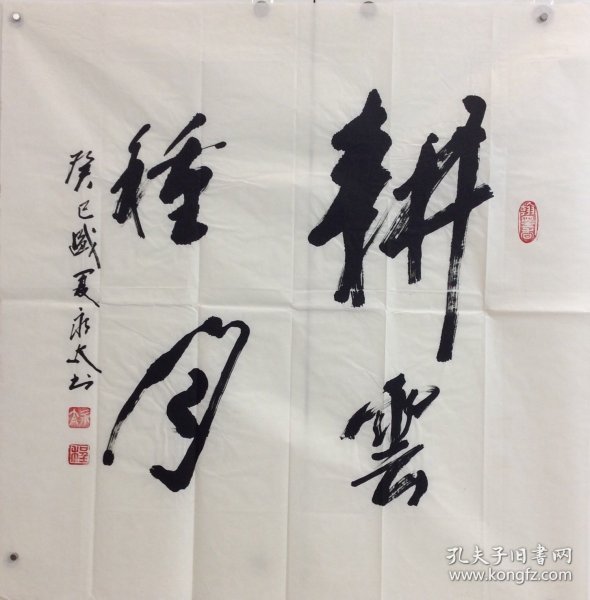 耕雲
種月
癸巳盛夏永文书
孔夫子旧书网
www.kongfz.com